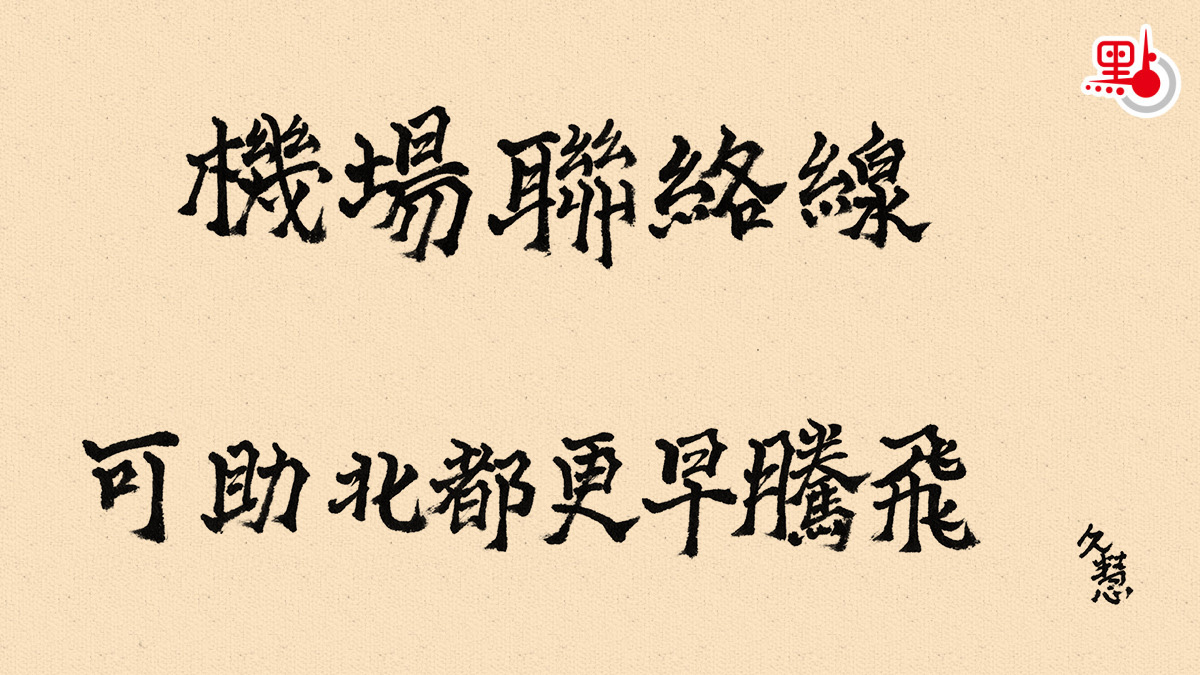 點
機場聯絡線
可助北都更早騰飛
久慧